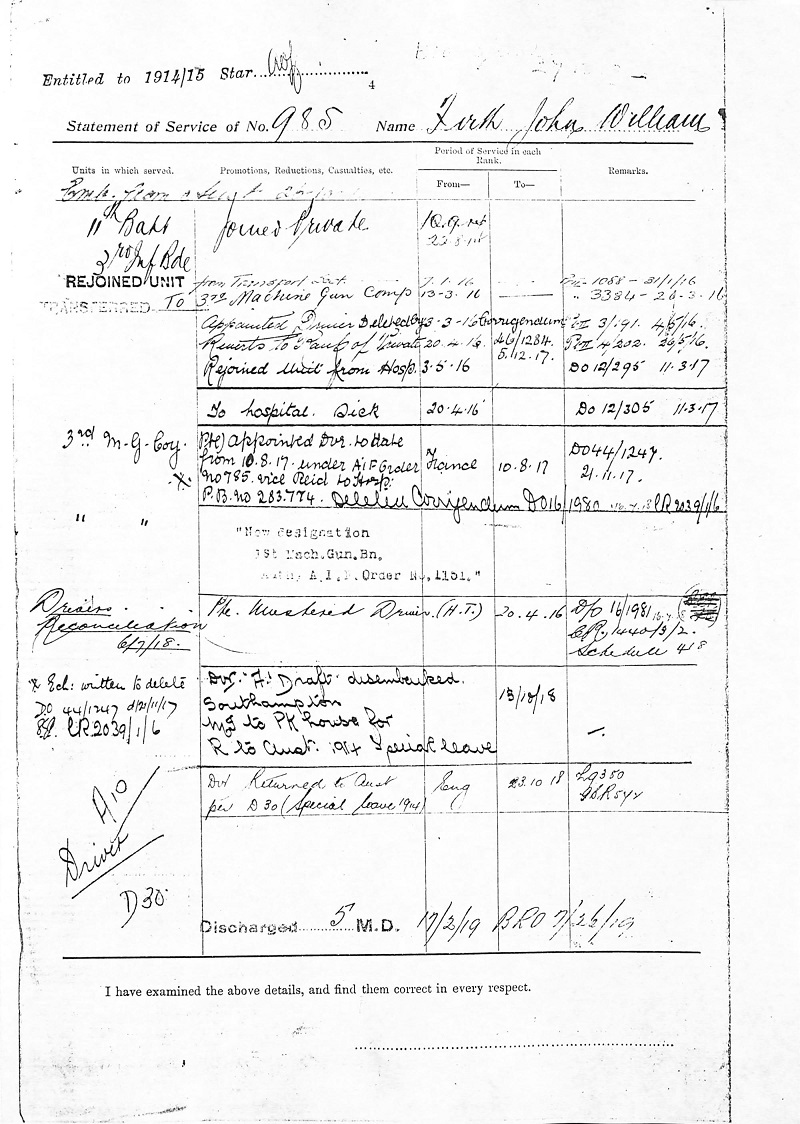 Entitled to 1914/15 Star
4
Statement of Service of No. 985 Name Firth John William
Units in which served. Promotions, Reductions, Casualties, etc. Period of Service in each Rank. Remarks.
From— To—
11th Batt Joined Private
3rd Inf Bde
REJOINED UNIT from Transport 7.1.16 1088 - 31/1/16
TRANSFERRED To 3rd Machine Gun Comp 13-3.16 " 3384 - 26.3.16
Appointed Driver Deleted by 3-3-16 Corrigendum 3/191. 4/5/16.
Reverts to Rank of Private 20.4.16. 46/1284. 4/202. 29/5/16.
5.12.17.
Rejoined Unit from Hosp. 3.5.16 DO 12/295 11.3.17
To hospital. Sick 20.4.16 DO 12/305 11.3.17
3rd M-G-Coy. Pte) appointed Dvr. to date DO 44/1247.
from 10.8.17. under AIF Order France 10.8.17 21.11.17.
X. No 785. vice Reid to Hosp:
P.B. No 283.774. Deleted Corrigendum DO 16/1980 CR 2039/1/6
" " "New designation
1st Mach.Gun.Bn.
A.I.F. Order No. 1151."
Drivers Pte. Mustered Driver (H.T.) 20.4.16 D/O 16/1981
Reconciliation CR. 1440/3/2.
6/7/18. Schedule 418
X Ech: written to delete Dvr. 'A' Draft disembarked.
DO 44/1247 d/21/11/17 Southampton 15/10/18
CR 2039/1/6 M I to PK house for
R to Aust. 1914 Special leave
A10 Dvr Returned to Aust Eng 23.10.18
per D30 (Special leave 1914)
Driver
D30.
Discharged 5 M.D. 17/2/19 BRO 7/26/19
I have examined the above details, and find them correct in every respect.